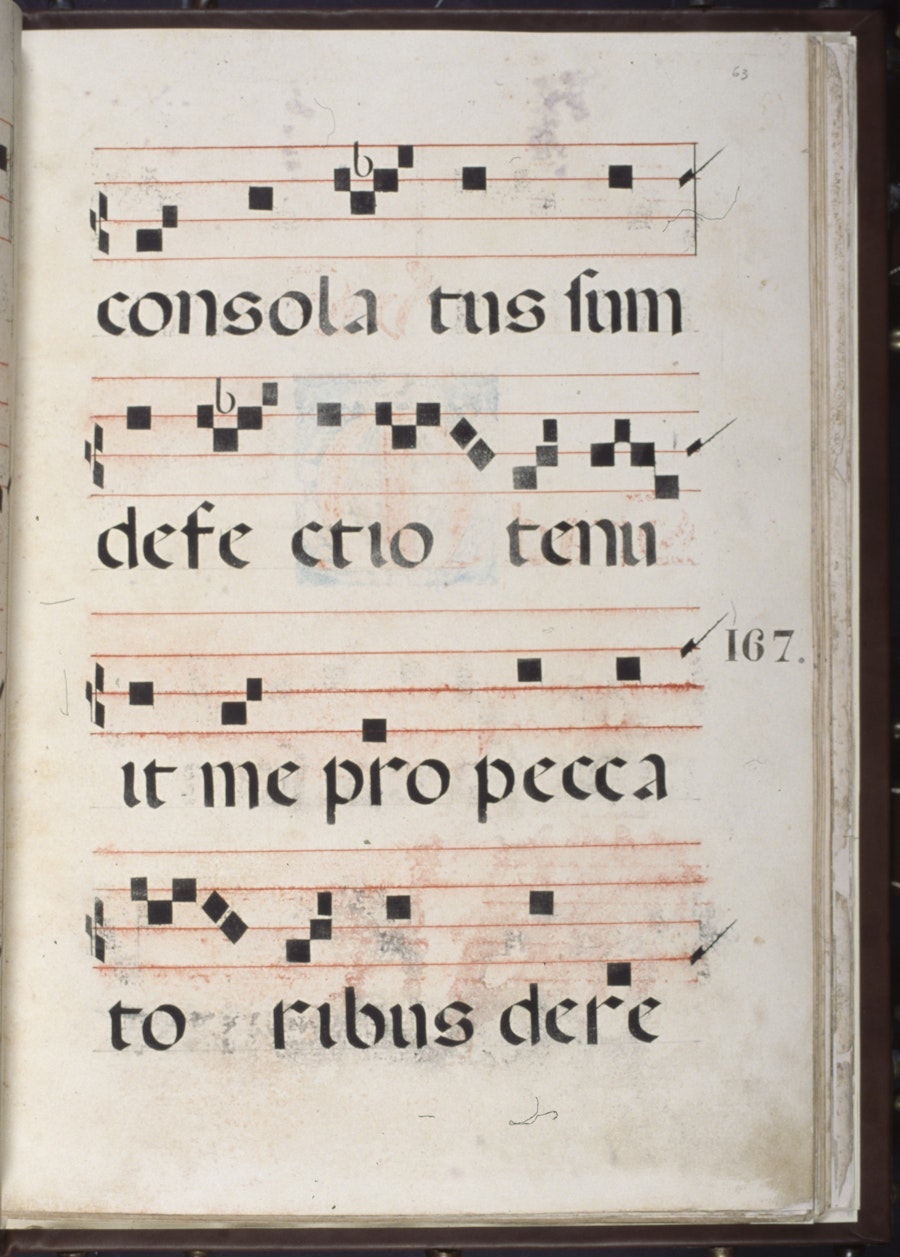 63
consola tus sum
defe ctio tenu
167.
it me pro pecca
to ribus dere